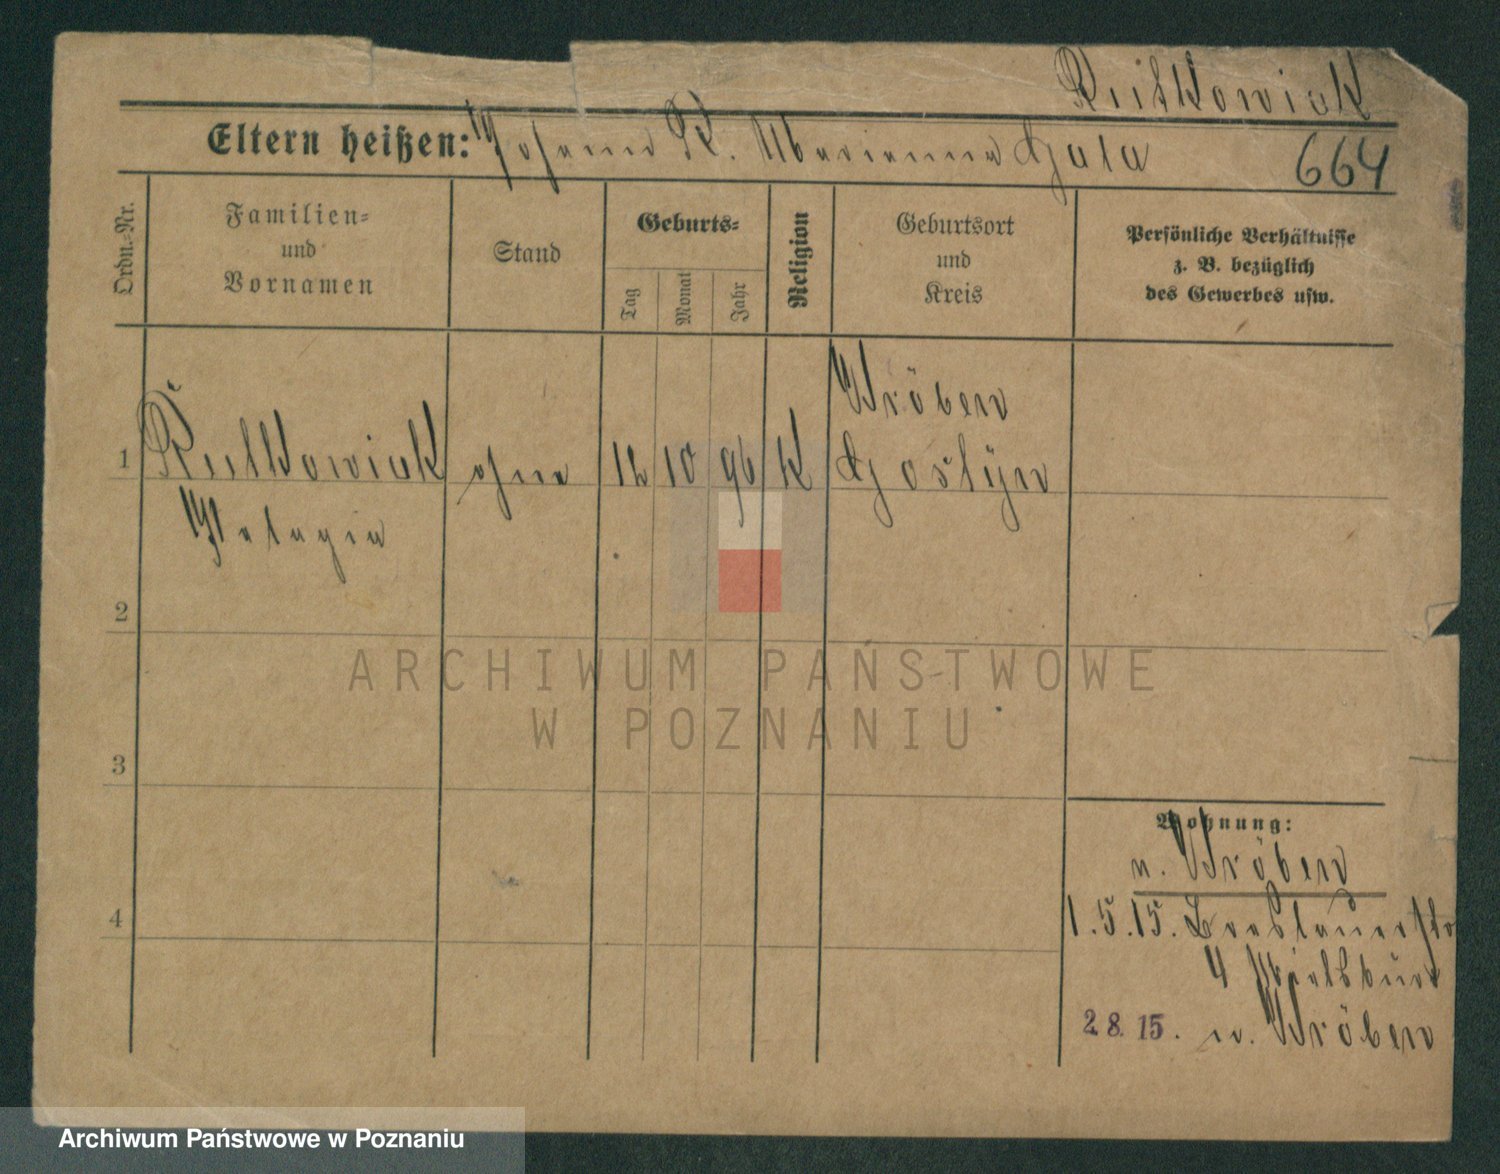 Rutkowiak
Eltern heißen: Johann R. Marianna Gala 664
Ordn.-Nr.
Familien-
und
Vornamen
Stand
Geburts-
Tag
Monat
Jahr
Religion
Geburtsort
und
Kreis
Persönliche Verhältnisse
z. B. bezüglich
des Gewerbes usw.
Kröben
1 Rutkowiak ohne 12 10 96 K Gostyn
Pelagia
2
3
4
ARCHIWUM PAŃSTWOWE
W POZNANIU
Wohnung:
n. Kröben
1.5.15. Breslauerstr
4
2.8.15. n. Kröben
Archiwum Państwowe w Poznaniu